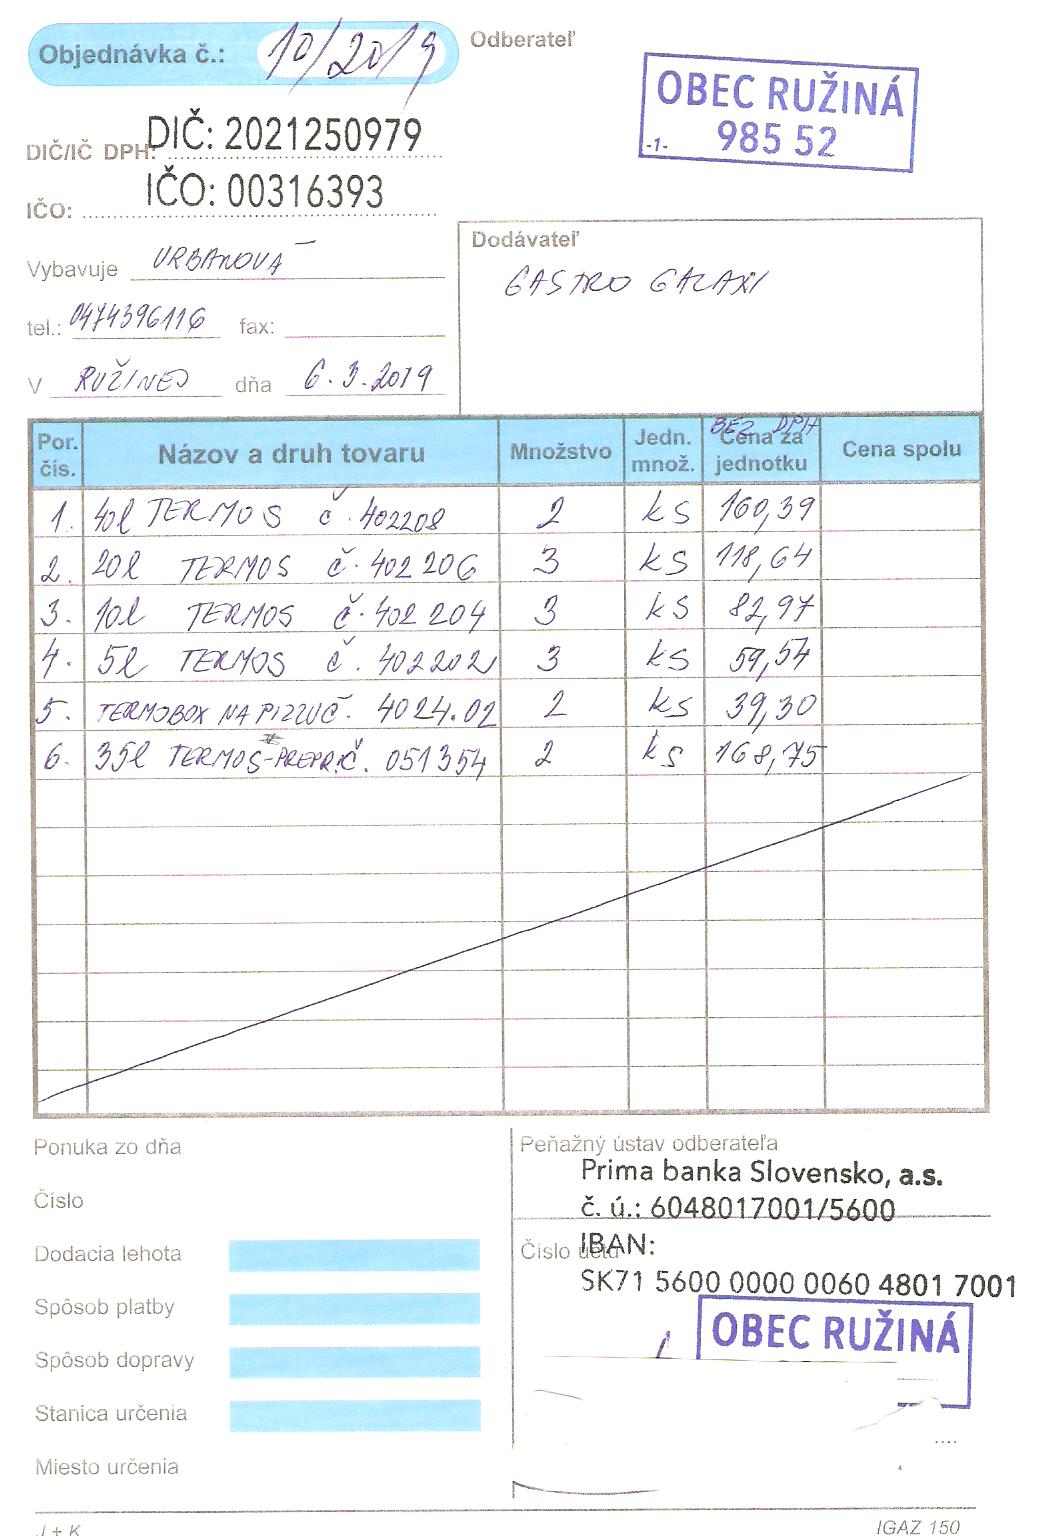 Objednávka č.: 10/2019
Odberateľ
OBEC RUŽINÁ
985 52
-1-
DIČ/IČ DPH: DIČ: 2021250979
IČO: IČO: 00316393
Vybavuje URBANOVÁ
tel.: 0474396116 fax:
V RUŽINEJ dňa 6.3.2019
Dodávateľ
GASTRO GALAXI
Por. čís. Názov a druh tovaru Množstvo Jedn. množ. BEZ DPH Cena za jednotku Cena spolu
1. 40l TERMOS č. 402208 2 ks 160,39
2. 20l TERMOS č. 402 206 3 ks 118,64
3. 10l TERMOS č. 402 204 3 ks 82,97
4. 5l TERMOS č. 402202 3 ks 59,54
5. TERMOBOX NA PIZZU č. 4024.02 2 ks 39,30
6. 35l TERMOS-PREPR. č. 051354 2 ks 168,75
Ponuka zo dňa
Číslo
Dodacia lehota
Spôsob platby
Spôsob dopravy
Stanica určenia
Miesto určenia
Peňažný ústav odberateľa
Prima banka Slovensko, a.s.
č. ú.: 6048017001/5600
Číslo účtu
IBAN:
SK71 5600 0000 0060 4801 7001
OBEC RUŽINÁ
J + K
IGAZ 150